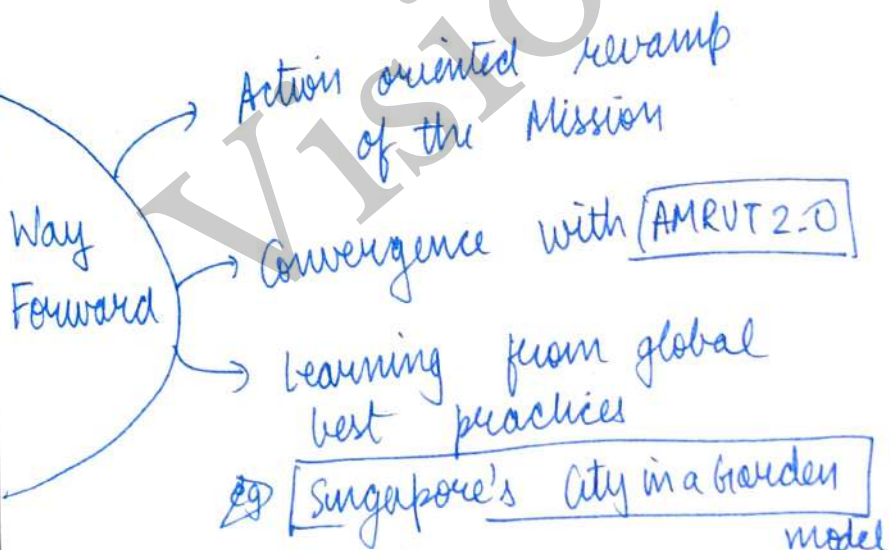 Action oriented revamp
of the Mission
Way
Forward
Convergence with AMRUT 2.0
Learning from global
best practices
eg Singapore's City in a Garden
model
Visio